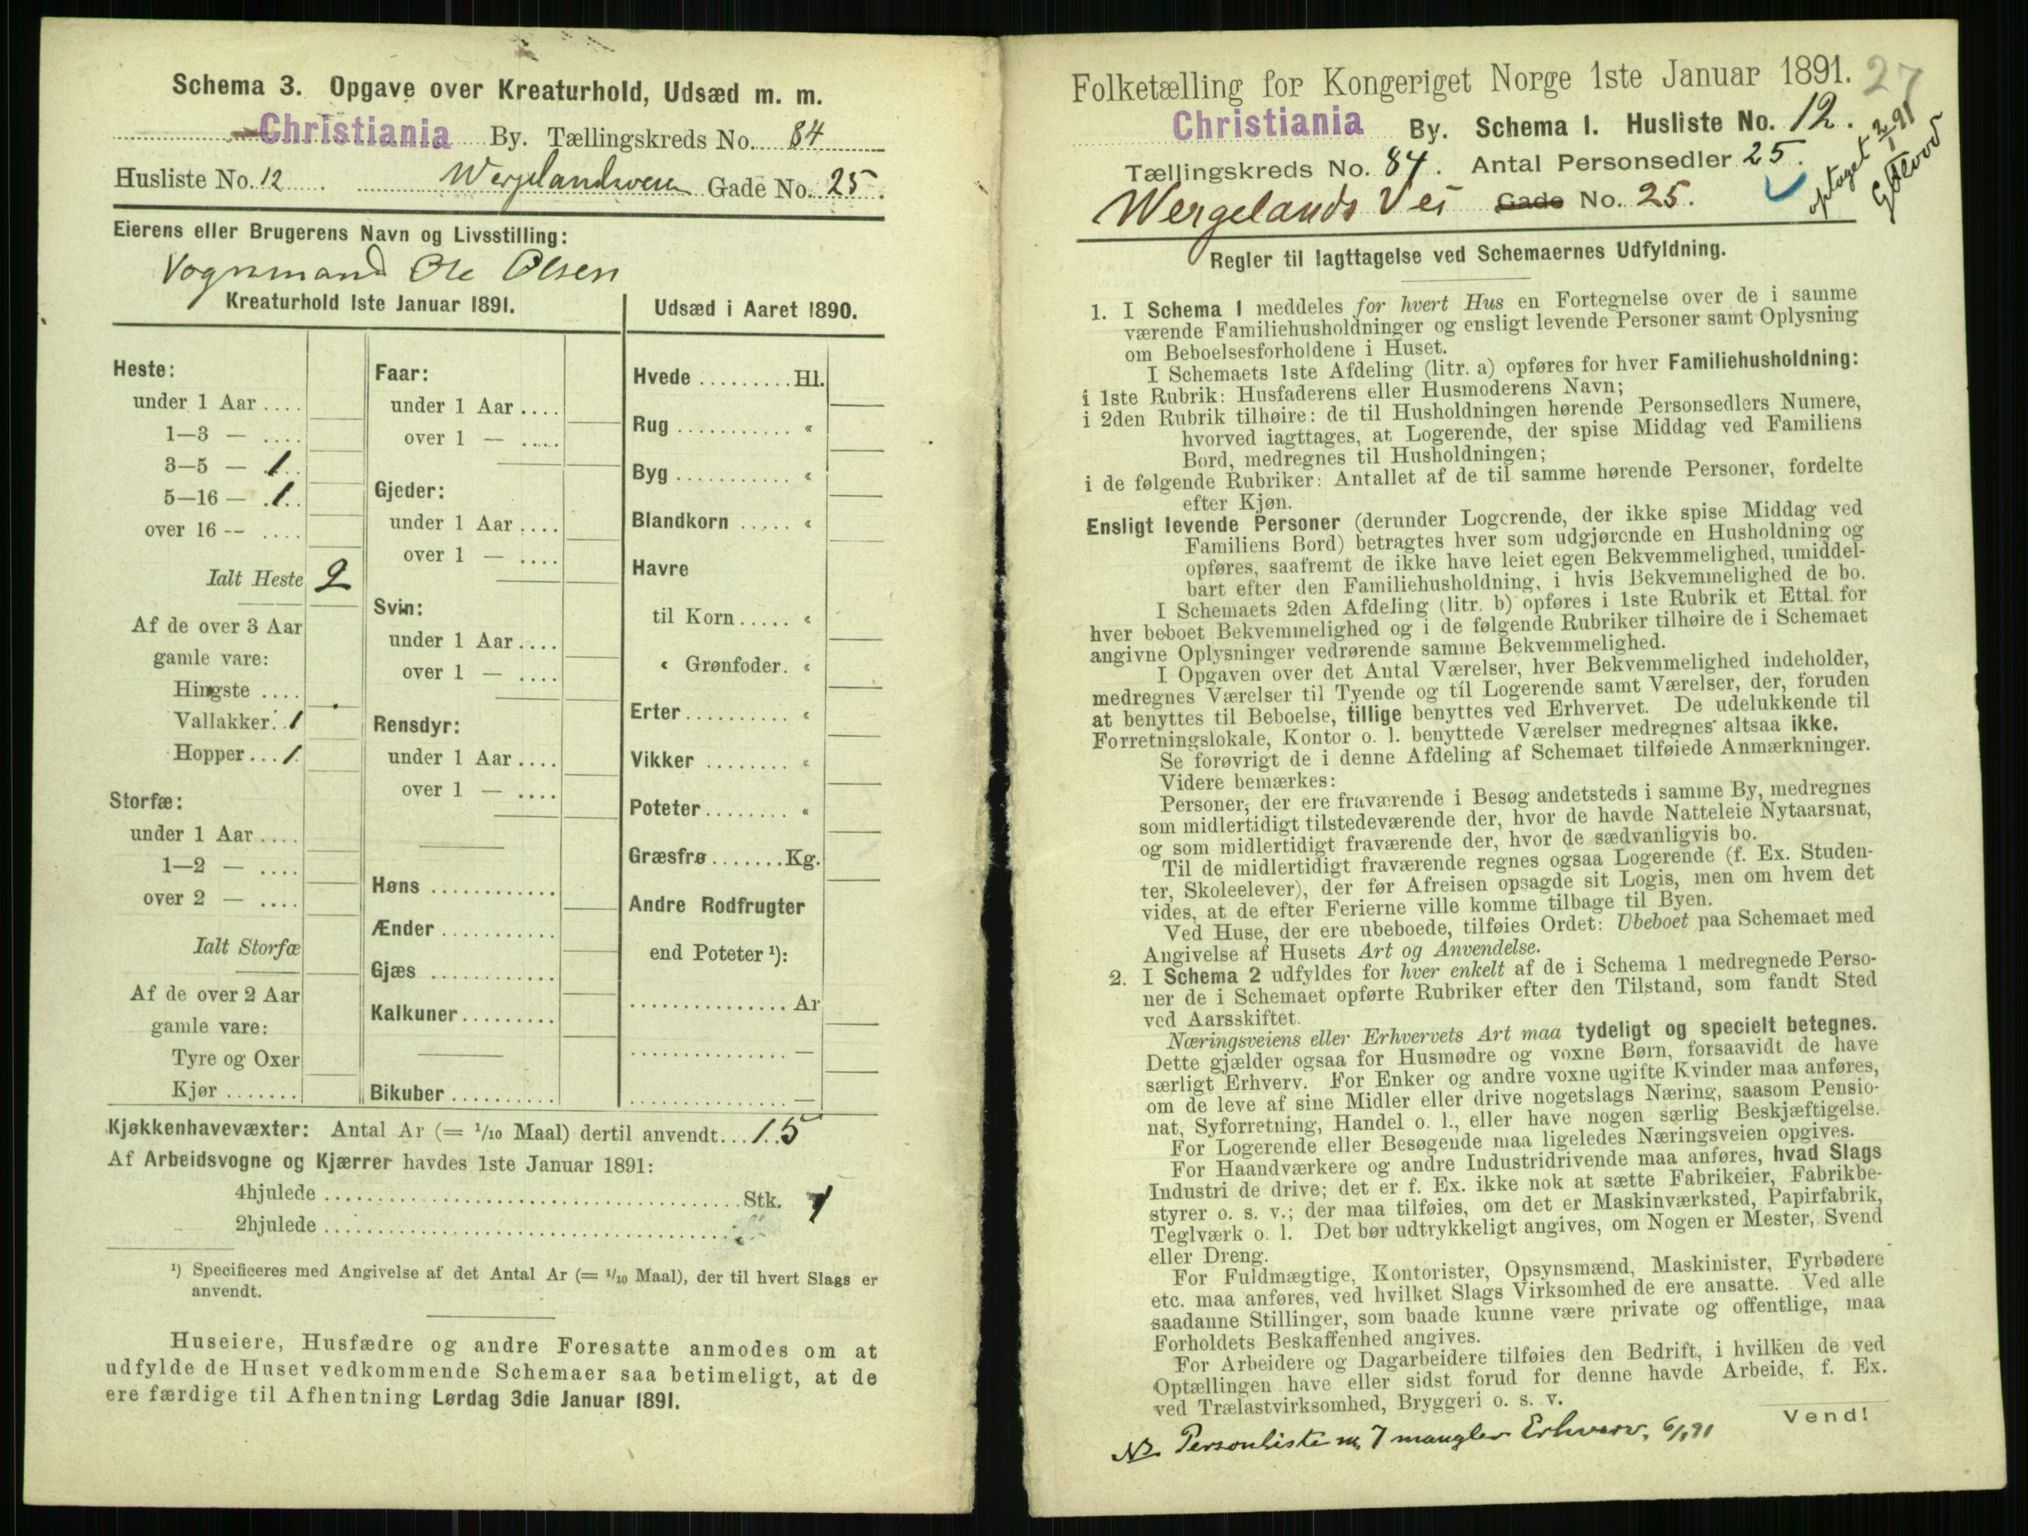 Schema 3. Opgave over Kreaturhold, Udsæd m. m.
Christiania By. Tællingskreds No. 84
Husliste No. 12 Wergelandsveien Gade No. 25.
Eierens eller Brugerens Navn og Livsstilling:
Vognmand Ole Olsen
Kreaturhold 1ste Januar 1891.
Heste:
under 1 Aar ....
1—3 — ....
3—5 — .1..
5—16 — .1..
over 16 -- ....
Ialt Heste 2
Af de over 3 Aar
gamle vare:
Hingste ....
Vallakker. 1
Hopper ... 1.
Storfæ:
under 1 Aar ....
1—2 — ....
over 2 — ....
Ialt Storfæ
Af de over 2 Aar
gamle vare:
Tyre og Oxer
Kjør .......
Faar:
under 1 Aar ....
over 1 — ....
Gjeder:
under 1 Aar ....
over 1 — ....
Svin:
under 1 Aar ....
over 1 — ....
Rensdyr:
under 1 Aar ....
over 1 — ....
Høns ............
Ænder ...........
Gjæs ............
Kalkuner.........
Bikuber ..........
Udsæd i Aaret 1890.
Hvede .........Hl.
Rug ........... «
Byg ........... «
Blandkorn ..... «
Havre
til Korn ..... «
« Grønfoder. «
Erter .......... «
Vikker ........ «
Poteter ........ «
Græsfrø .......Kg.
Andre Rodfrugter
end Poteter ¹):
............... Ar
............... —
............... —
Kjøkkenhavevæxter: Antal Ar (= 1/10 Maal) dertil anvendt...1.5
Af Arbeidsvogne og Kjærrer havdes 1ste Januar 1891:
4hjulede ........................................Stk. 1
2hjulede ........................................
¹) Specificeres med Angivelse af det Antal Ar (= 1/10 Maal), der til hvert Slags er
anvendt.
Huseiere, Husfædre og andre Foresatte anmodes om at
udfylde de Huset vedkommende Schemaer saa betimeligt, at de
ere færdige til Afhentning Lørdag 3die Januar 1891.
Folketælling for Kongeriget Norge 1ste Januar 1891. 27
Christiania By. Schema 1. Husliste No. 12.
Tællingskreds No. 84. Antal Personsedler 25.
Wergelands Vei Gade No. 25.
optaget 2/1 91
Regler til Iagttagelse ved Schemaernes Udfyldning.
1. I Schema 1 meddeles for hvert Hus en Fortegnelse over de i samme
værende Familiehusholdninger og ensligt levende Personer samt Oplysning
om Beboelsesforholdene i Huset.
I Schemaets 1ste Afdeling (litr. a) opføres for hver Familiehusholdning:
i 1ste Rubrik: Husfaderens eller Husmoderens Navn;
i 2den Rubrik tilhøire: de til Husholdningen hørende Personsedlers Numere,
hvorved iagttages, at Logerende, der spise Middag ved Familiens
Bord, medregnes til Husholdningen;
i de følgende Rubriker: Antallet af de til samme hørende Personer, fordelte
efter Kjøn.
Ensligt levende Personer (derunder Logerende, der ikke spise Middag ved
Familiens Bord) betragtes hver som udgjørende en Husholdning og
opføres, saafremt de ikke have leiet egen Bekvemmelighed, umiddel-
bart efter den Familiehusholdning, i hvis Bekvemmelighed de bo.
I Schemaets 2den Afdeling (litr. b) opføres i 1ste Rubrik et Ettal for
hver beboet Bekvemmelighed og i de følgende Rubriker tilhøire de i Schemaet
angivne Oplysninger vedrørende samme Bekvemmelighed.
I Opgaven over det Antal Værelser, hver Bekvemmelighed indeholder,
medregnes Værelser til Tyende og til Logerende samt Værelser, der, foruden
at benyttes til Beboelse, tillige benyttes ved Erhvervet. De udelukkende til
Forretningslokale, Kontor o. l. benyttede Værelser medregnes altsaa ikke.
Se forøvrigt de i denne Afdeling af Schemaet tilføiede Anmærkninger.
Videre bemærkes:
Personer, der ere fraværende i Besøg andetsteds i samme By, medregnes
som midlertidigt tilstedeværende der, hvor de havde Natteleie Nytaarsnat,
og som midlertidigt fraværende der, hvor de sædvanligvis bo.
Til de midlertidigt fraværende regnes ogsaa Logerende (f. Ex. Studen-
ter, Skoleelever), der før Afreisen opsagde sit Logis, men om hvem det
vides, at de efter Ferierne ville komme tilbage til Byen.
Ved Huse, der ere ubeboede, tilføies Ordet: Ubeboet paa Schemaet med
Angivelse af Husets Art og Anvendelse.
2. I Schema 2 udfyldes for hver enkelt af de i Schema 1 medregnede Perso-
ner de i Schemaet opførte Rubriker efter den Tilstand, som fandt Sted
ved Aarsskiftet.
Næringsveiens eller Erhvervets Art maa tydeligt og specielt betegnes.
Dette gjælder ogsaa for Husmødre og voxne Børn, forsaavidt de have
særligt Erhverv. For Enker og andre voxne ugifte Kvinder maa anføres,
om de leve af sine Midler eller drive nogetslags Næring, saasom Pensio-
nat, Syforretning, Handel o. l., eller have nogen særlig Beskjæftigelse.
For Logerende eller Besøgende maa ligeledes Næringsveien opgives.
For Haandværkere og andre Industridrivende maa anføres, hvad Slags
Industri de drive; det er f. Ex. ikke nok at sætte Fabrikeier, Fabrikbe-
styrer o. s. v.; der maa tilføies, om det er Maskinværksted, Papirfabrik,
Teglværk o. l. Det bør udtrykkeligt angives, om Nogen er Mester, Svend
eller Dreng.
For Fuldmægtige, Kontorister, Opsynsmænd, Maskinister, Fyrbødere
etc. maa anføres, ved hvilket Slags Virksomhed de ere ansatte. Ved alle
saadanne Stillinger, som baade kunne være private og offentlige, maa
Forholdets Beskaffenhed angives.
For Arbeidere og Dagarbeidere tilføies den Bedrift, i hvilken de ved
Optællingen have eller sidst forud for denne havde Arbeide, f. Ex.
ved Trælastvirksomhed, Bryggeri o. s. v.
Vend!
NB. Personliste No 7 mangler Erhverv. 6/1 91